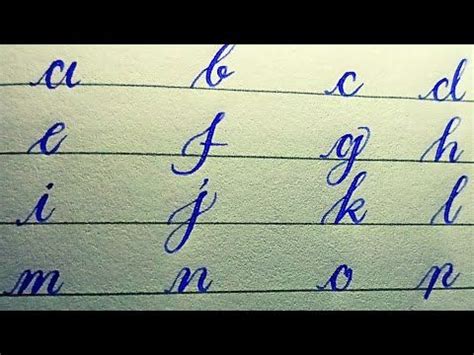 a b c d
e f g h
i j k l
m n o p